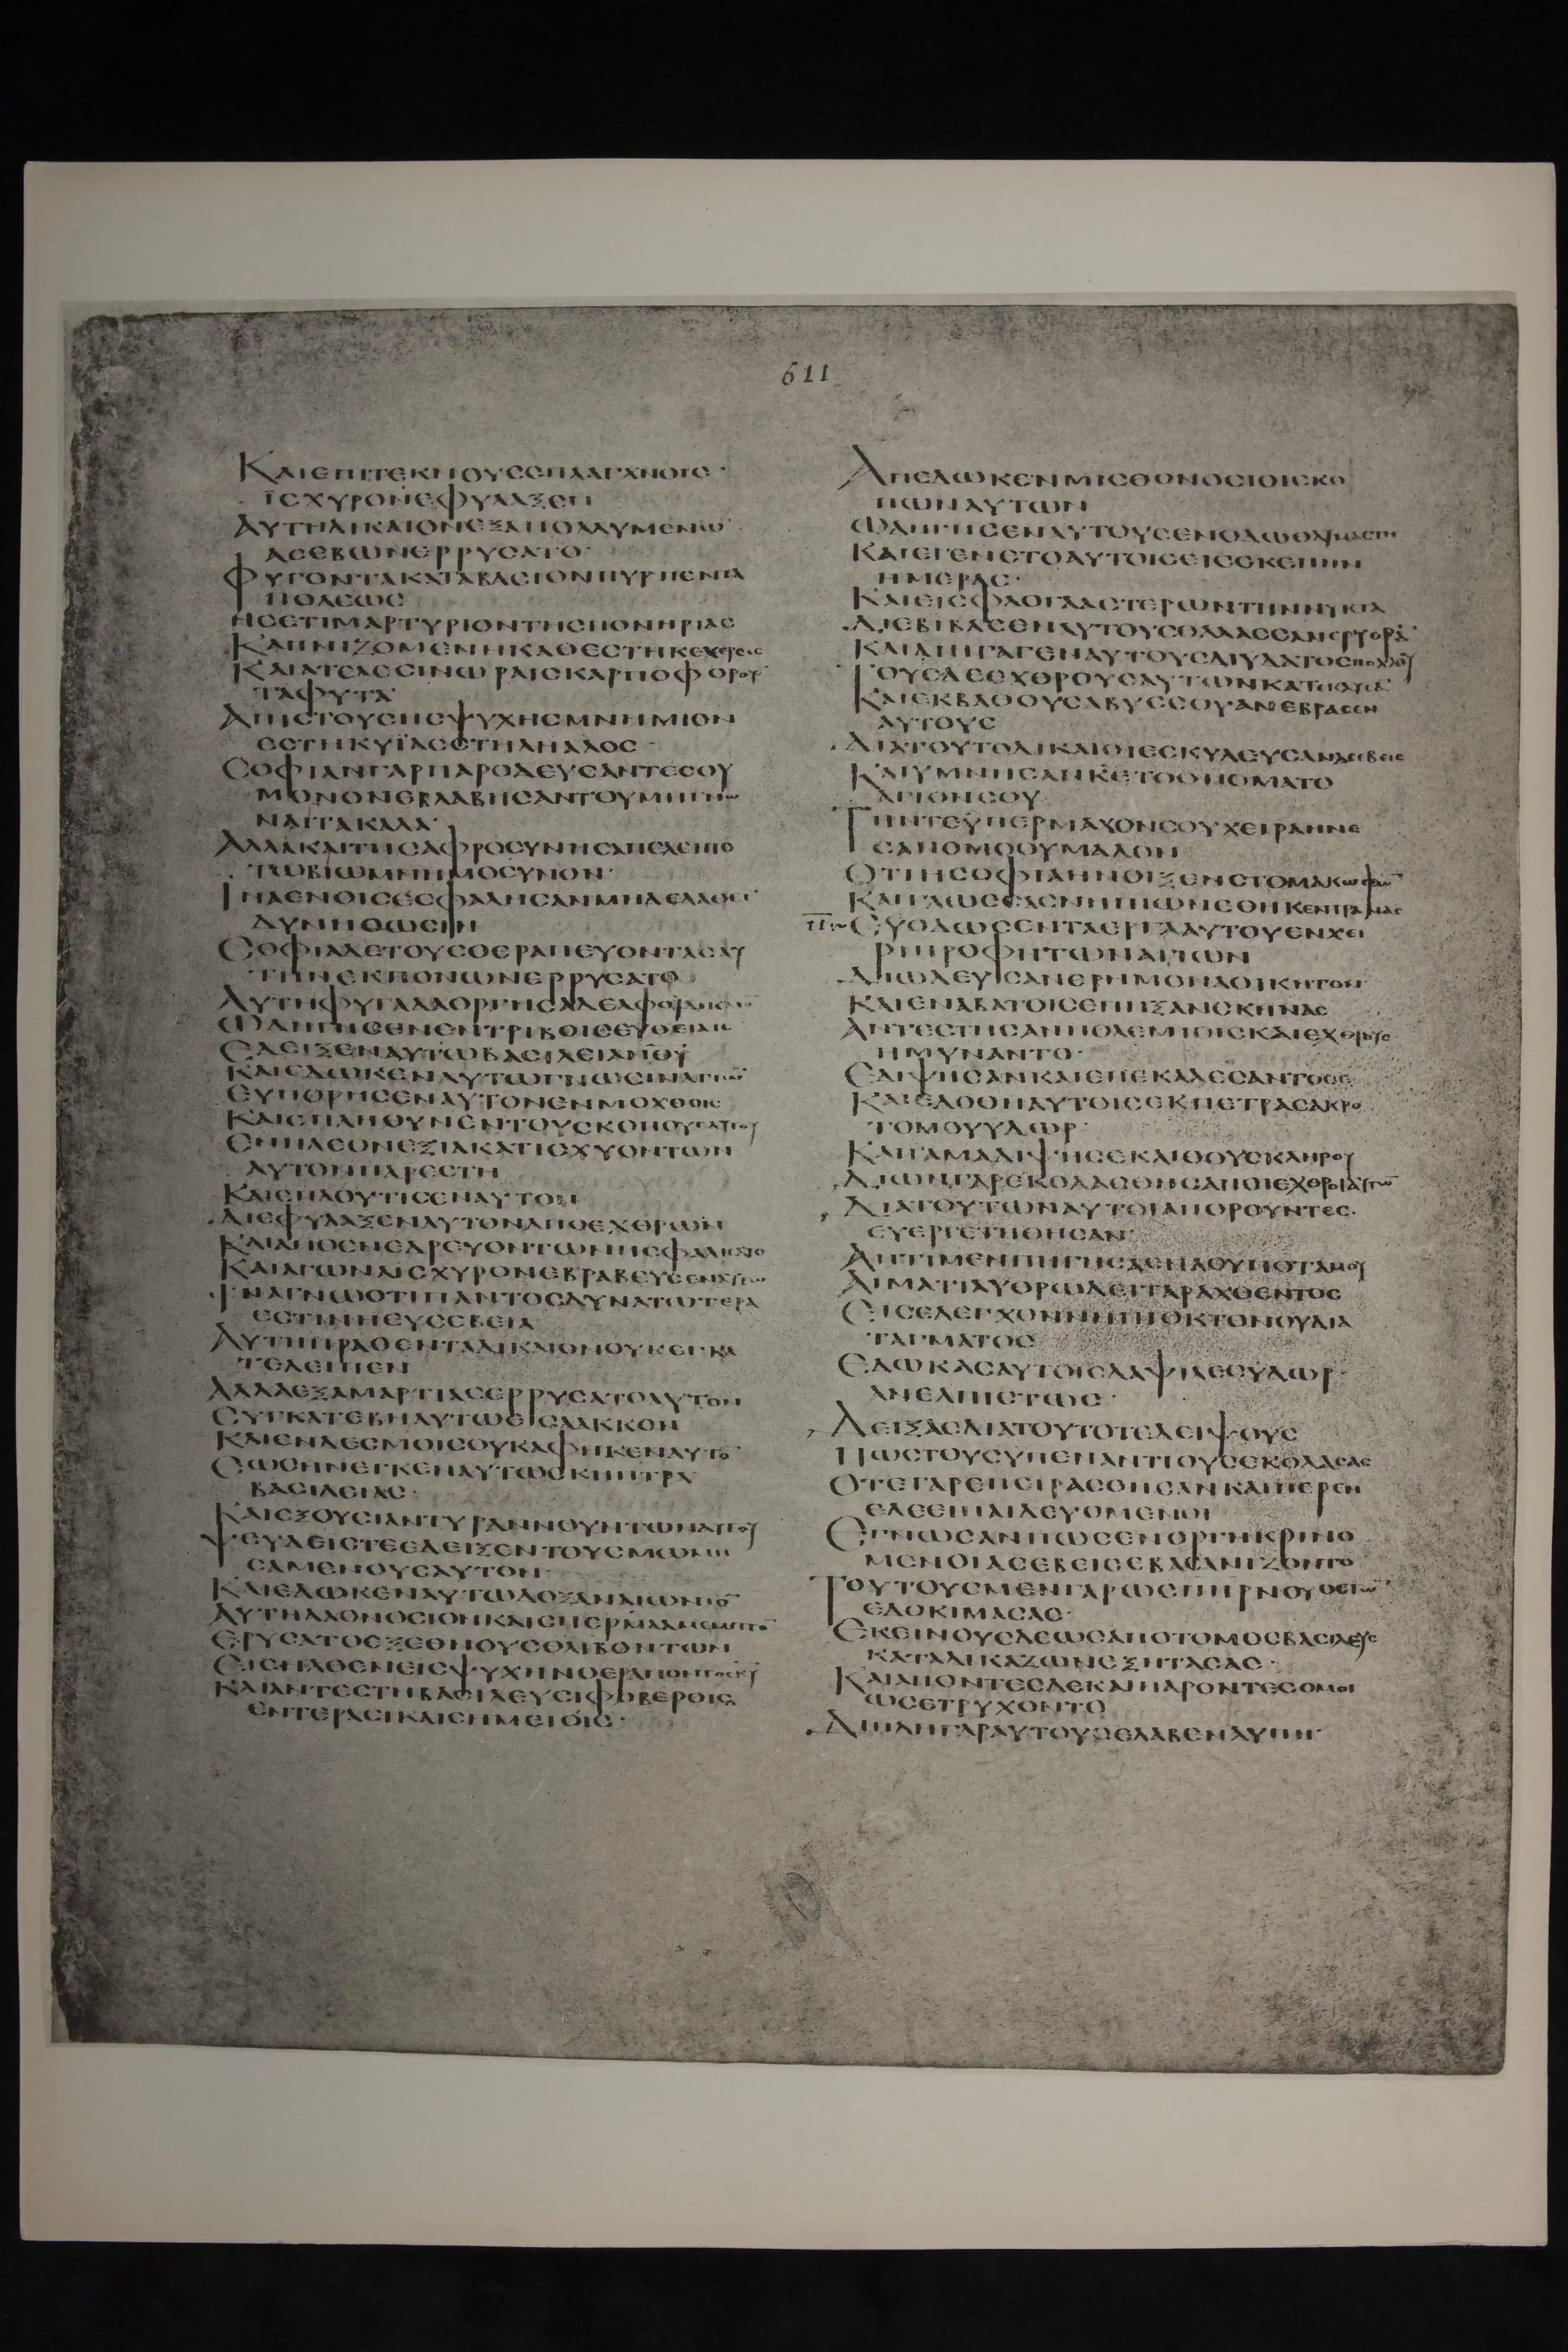 611
ΚΑΙΕΠΙΤΕΚΝΟΥΣΠΛΑΓΧΝΟΙΣ·
ΪΣΧΥΡΟΝΕΦΥΛΑΞΕΝ
ΑΥΤΗΔΙΚΑΙΟΝΕΞΑΠΟΛΛΥΜΕΝΩ̅
ΑΣΕΒΩΝΕΡΡΥΣΑΤΟ·
ΦΥΓΟΝΤΑΚΑΤΑΒΑΣΙΟΝΠΥΡΠΕΝΤΑ
ΠΟΛΕΩΣ
ΗΣΕΤΙΜΑΡΤΥΡΙΟΝΤΗΣΠΟΝΗΡΙΑΣ
ΚΑΠΝΙΖΟΜΕΝΗΚΑΘΕΣΤΗΚΕΧΕΡΣΟΣ
ΚΑΙΑΤΕΛΕΣΙΝΩΡΑΙΣΚΑΡΠΟΦΟΡΟΥ̅
ΤΑΦΥΤΑ·
ΑΠΙΣΤΟΥΣΗΣΨΥΧΗΣΜΝΗΜΙΟΝ
ΕΣΤΗΚΥΪΑΣΤΗΛΗΑΛΟΣ·
ΣΟΦΙΑΝΓΑΡΠΑΡΟΔΕΥΣΑΝΤΕΣΟΥ
ΜΟΝΟΝΕΒΛΑΒΗΣΑΝΤΟΥΜΗΓΝΩ
ΝΑΙΤΑΚΑΛΑ·
ΑΛΛΑΚΑΙΤΗΣΑΦΡΟΣΥΝΗΣΑΠΕΛΕΙΠΟ̅
ΤΩΒΙΩΜΝΗΜΟΣΥΝΟΝ·
ΙΝΑΕΝΟΙΣΕΣΦΑΛΗΣΑΝΜΗΔΕΛΑΘΕΙ̅
ΔΥΝΗΘΩΣΙΝ
ΣΟΦΙΑΔΕΤΟΥΣΘΕΡΑΠΕΥΟΝΤΑΣΑΥ
ΤΗΝΕΚΠΟΝΩΝΕΡΡΥΣΑΤΟ
ΑΥΤΗΦΥΓΑΔΑΟΡΓΗΣΑΔΕΛΦΟΥΔΙΚΑΙΟ̅
ΩΔΗΓΗΣΕΝΕΝΤΡΙΒΟΙΣΕΥΘΕΙΑΙΣ
ΕΔΕΙΞΕΝΑΥΤΩΒΑΣΙΛΕΙΑΝΘ̅Υ̅
ΚΑΙΕΔΩΚΕΝΑΥΤΩΓΝΩΣΙΝΑΓΙΩ̅
ΕΥΠΟΡΗΣΕΝΑΥΤΟΝΕΝΜΟΧΘΟΙΣ
ΚΑΙΕΠΛΗΘΥΝΕΝΤΟΥΣΚΟΠΟΥΣΑΥΤΟΥ
ΕΝΠΛΕΟΝΕΞΙΑΚΑΤΙΣΧΥΟΝΤΩΝ
ΑΥΤΟΝΠΑΡΕΣΤΗ
ΚΑΙΕΠΛΟΥΤΙΣΕΝΑΥΤΟΝ
ΔΙΕΦΥΛΑΞΕΝΑΥΤΟΝΑΠΟΕΧΘΡΩΝ
ΚΑΙΑΠΟΕΝΕΔΡΕΥΟΝΤΩΝΗΣΦΑΛΙΣΑΤΟ
ΚΑΙΑΓΩΝΑΙΣΧΥΡΟΝΕΒΡΑΒΕΥΣΕΝΑΥΤΩ
ΙΝΑΓΝΩΟΤΙΠΑΝΤΟΣΔΥΝΑΤΩΤΕΡΑ
ΕΣΤΙΝΗΕΥΣΕΒΕΙΑ
ΑΥΤΗΠΡΑΘΕΝΤΑΔΙΚΑΙΟΝΟΥΚΕΓΚΑ
ΤΕΛΕΙΠΕΝ
ΑΛΛΑΕΞΑΜΑΡΤΙΑΣΕΡΡΥΣΑΤΟΑΥΤΟΝ
ΣΥΓΚΑΤΕΒΗΑΥΤΩΕΙΣΛΑΚΚΟΝ
ΚΑΙΕΝΔΕΣΜΟΙΣΟΥΚΑΦΗΚΕΝΑΥΤΟ̅
ΕΩΣΗΝΕΓΚΕΝΑΥΤΩΣΚΗΠΤΡΑ
ΒΑΣΙΛΕΙΑΣ·
ΚΑΙΕΞΟΥΣΙΑΝΤΥΡΑΝΝΟΥΝΤΩΝΑΥΤΟΥ
ΨΕΥΔΕΙΣΤΕΕΔΕΙΞΕΝΤΟΥΣΜΩΜΗ
ΣΑΜΕΝΟΥΣΑΥΤΟΝ·
ΚΑΙΕΔΩΚΕΝΑΥΤΩΔΟΞΑΝΑΙΩΝΙΟ̅
ΑΥΤΗΛΑΟΝΟΣΙΟΝΚΑΙΣΠΕΡΜΑΑΜΕΜΠΤΟ̅
ΕΡΥΣΑΤΟΕΞΕΘΝΟΥΣΘΛΙΒΟΝΤΩΝ
ΕΙΣΗΛΘΕΝΕΙΣΨΥΧΗΝΘΕΡΑΠΟΝΤΟΣΚ̅Υ̅
ΚΑΙΑΝΤΕΣΤΗΒΑΣΙΛΕΥΣΙΦΟΒΕΡΟΙΣ
ΕΝΤΕΡΑΣΙΚΑΙΣΗΜΕΙΟΙΣ·
ΑΠΕΔΩΚΕΝΜΙΣΘΟΝΟΣΙΟΙΣΚΟ
ΠΩΝΑΥΤΩΝ
ΩΔΗΓΗΣΕΝΑΥΤΟΥΣΕΝΟΔΩΘΑΥΜΑΣΤΗ
ΚΑΙΕΓΕΝΕΤΟΑΥΤΟΙΣΕΙΣΣΚΕΠΗΝ
ΗΜΕΡΑΣ·
ΚΑΙΕΙΣΦΛΟΓΑΑΣΤΕΡΩΝΤΗΝΝΥΚΤΑ
ΔΙΕΒΙΒΑΣΕΝΑΥΤΟΥΣΘΑΛΑΣΣΑΝΕΡΥΘΡΑ̅
ΚΑΙΔΙΗΓΑΓΕΝΑΥΤΟΥΣΔΙΥΔΑΤΟΣΠΟΛΛΟΥ
ΤΟΥΣΔΕΕΧΘΡΟΥΣΑΥΤΩΝΚΑΤΕΚΛΥΣΕ̅
ΚΑΙΕΚΒΑΘΟΥΣΑΒΥΣΣΟΥΑΝΕΒΡΑΣΕΝ
ΑΥΤΟΥΣ
ΔΙΑΤΟΥΤΟΔΙΚΑΙΟΙΕΣΚΥΛΕΥΣΑΝΑΣΕΒΕΙΣ
ΚΑΙΥΜΝΗΣΑΝΚ̅Ε̅ΤΟΟΝΟΜΑΤΟ
ΑΓΙΟΝΣΟΥ
ΤΗΝΤΕΥΠΕΡΜΑΧΟΝΣΟΥΧΕΙΡΑΗΝΕ
ΣΑΝΟΜΟΘΥΜΑΔΟΝ
ΟΤΙΗΣΟΦΙΑΗΝΟΙΞΕΝΣΤΟΜΑΚΩΦΩ̅
ΚΑΙΓΛΩΣΣΑΣΝΗΠΙΩΝΕΘΗΚΕΝΤΡΑΝΑΣ
ΕΥΟΔΩΣΕΝΤΑΕΡΓΑΑΥΤΟΥΕΝΧΕΙ
ΡΙΠΡΟΦΗΤΩΝΑΓΙΩΝ
ΔΙΩΔΕΥΣΑΝΕΡΗΜΟΝΑΟΙΚΗΤΟΝ·
ΚΑΙΕΝΑΒΑΤΟΙΣΕΠΗΞΑΝΣΚΗΝΑΣ
ΑΝΤΕΣΤΗΣΑΝΠΟΛΕΜΙΟΙΣΚΑΙΕΧΘΡΟΥΣ
ΗΜΥΝΑΝΤΟ·
ΕΔΙΨΗΣΑΝΚΑΙΕΠΕΚΑΛΕΣΑΝΤΟΣΕ
ΚΑΙΕΔΟΘΗΑΥΤΟΙΣΕΚΠΕΤΡΑΣΑΚΡΟ
ΤΟΜΟΥΥΔΩΡ·
ΚΑΙΙΑΜΑΔΙΨΗΣΕΚΛΙΘΟΥΣΚΛΗΡΟΥ
ΔΙΩΝΓΑΡΕΚΟΛΑΣΘΗΣΑΝΟΙΕΧΘΡΟΙΑΥΤΩ̅
ΔΙΑΤΟΥΤΩΝΑΥΤΟΙΑΠΟΡΟΥΝΤΕΣ·
ΕΥΕΡΓΕΤΗΘΗΣΑΝ·
ΑΝΤΙΜΕΝΠΗΓΗΣΑΕΝΑΟΥΠΟΤΑΜΟΥ
ΑΙΜΑΤΙΛΥΘΡΩΔΕΙΤΑΡΑΧΘΕΝΤΟΣ
ΕΙΣΕΛΕΓΧΟΝΝΗΠΙΟΚΤΟΝΟΥΔΙΑ
ΤΑΓΜΑΤΟΣ
ΕΔΩΚΑΣΑΥΤΟΙΣΔΑΨΙΛΕΣΥΔΩΡ·
ΑΝΕΛΠΙΣΤΩΣ·
ΔΕΙΞΑΣΔΙΑΤΟΥΤΟΤΕΔΕΙΨΟΥΣ
ΠΩΣΤΟΥΣΥΠΕΝΑΝΤΙΟΥΣΕΚΟΛΑΣΑΣ
ΟΤΕΓΑΡΕΠΕΙΡΑΣΘΗΣΑΝΚΑΙΠΕΡΕΝ
ΕΛΕΕΙΠΑΙΔΕΥΟΜΕΝΟΙ
ΕΓΝΩΣΑΝΠΩΣΕΝΟΡΓΗΚΡΙΝΟ
ΜΕΝΟΙΑΣΕΒΕΙΣΕΒΑΣΑΝΙΖΟΝΤΟ
ΤΟΥΤΟΥΣΜΕΝΓΑΡΩΣΠΗΡΝΟΥΘΕΤΩ̅
ΕΔΟΚΙΜΑΣΑΣ·
ΕΚΕΙΝΟΥΣΔΕΩΣΑΠΟΤΟΜΟΣΒΑΣΙΛΕΥΣ
ΚΑΤΑΔΙΚΑΖΩΝΕΞΗΤΑΣΑΣ·
ΚΑΙΑΠΟΝΤΕΣΔΕΚΑΙΠΑΡΟΝΤΕΣΟΜΟΙ
ΩΣΕΤΡΥΧΟΝΤΟ
ΔΙΠΛΗΓΑΡΑΥΤΟΥΣΕΛΑΒΕΝΛΥΠΗ·